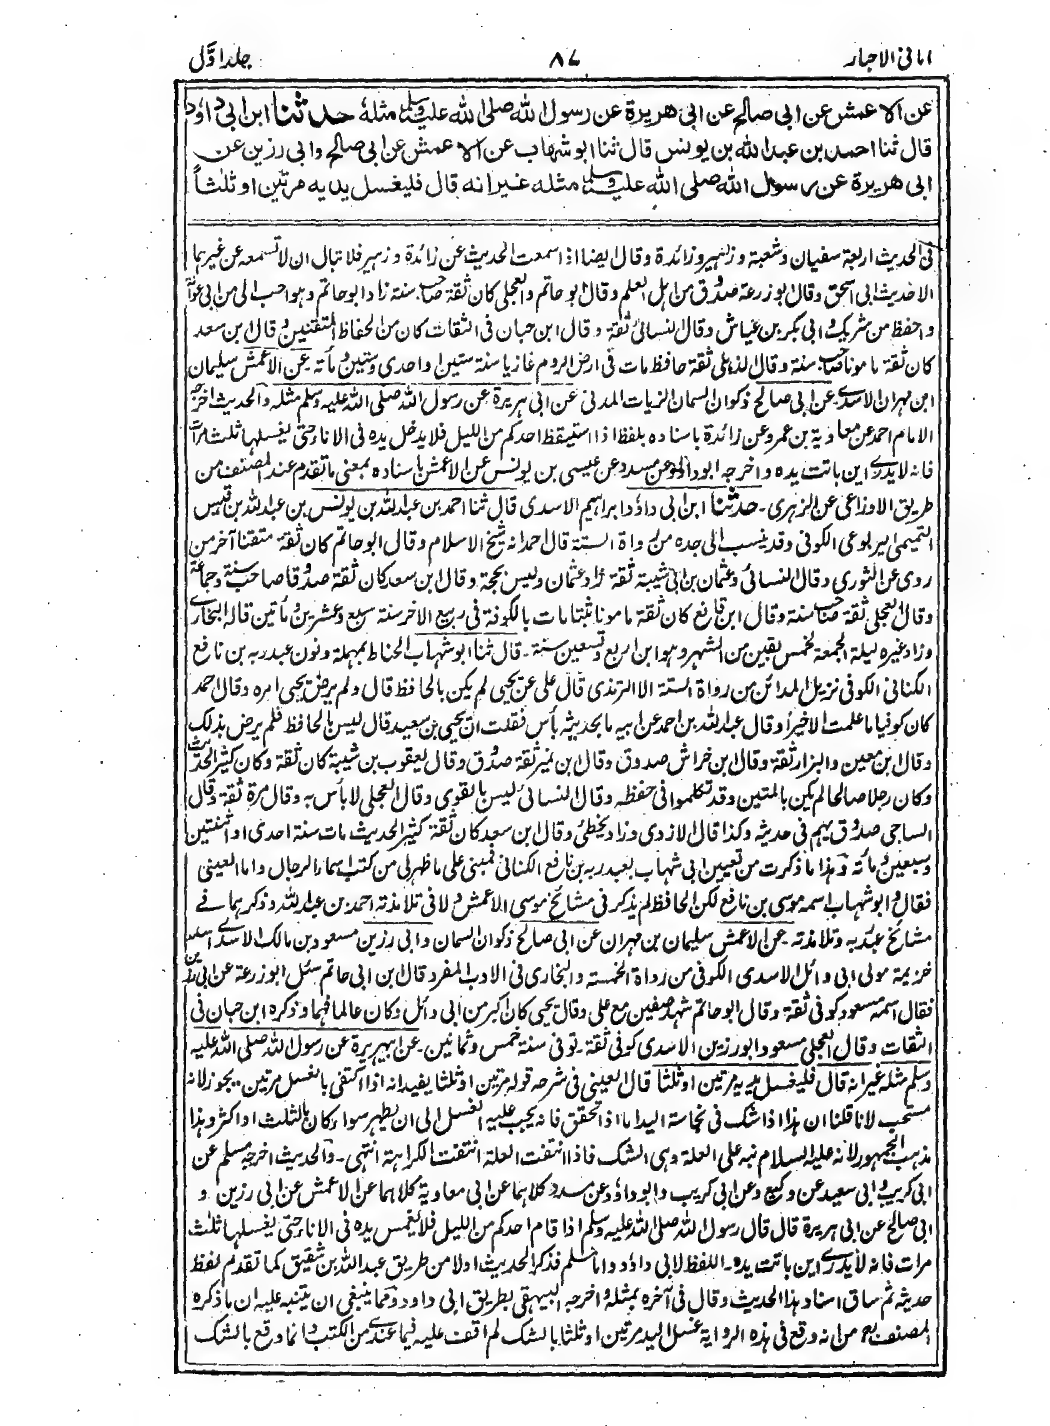 امانی الاحبار ۸۷ جلد اوّل
عن الاعمش عن ابی صالح عن ابی هریرة عن رسول الله صلی الله علیه وسلم مثله حدثنا ابن ابی داؤد
قال ثنا احمد بن عبد الله بن یونس قال ثنا ابو شهاب عن الاعمش عن ابی صالح وابی رزین عن
ابی هریرة عن رسول الله صلی الله علیه وسلم مثله غیر انه قال فلیغسل یدیه مرتین او ثلثاً
فی الحدیث اربعة سفیان وشعبة وزهیر وزائدة وقال ایضا اذا سمعت الحدیث عن زائدة وزهیر فلا تبال ان لا تسمعه عن غیرهما
الا حدیث ابی اسحق وقال ابو زرعة صدوق من اهل العلم وقال ابو حاتم والعجلی کان ثقة صاحب سنة زاد ابو حاتم وهو احب الی من ابی عوانة
واحفظ من شریک وابی بکر بن عیاش وقال النسائی ثقة وقال ابن حبان فی الثقات کان من الحفاظ المتقنین وقال ابن سعد
کان ثقة مامونا صاحب سنة وقال الذهلی ثقة حافظ مات فی ارض الروم غازیا سنة ستین او احدی وستین ومأته عن الاعمش سلیمان
ابن مهران الاسدی عن ابی صالح ذکوان السمان الزیات المدنی عن ابی هریرة عن رسول الله صلی الله علیه وسلم مثله والحدیث اخرجه
الامام احمد عن معاویة بن عمرو عن زائدة باسناده بلفظ اذا استیقظ احدکم من اللیل فلا یدخل یده فی الاناء حتی یغسلها ثلث مرات
فانه لا یدری این باتت یده واخرجه ابو داؤد عن مسدد عن عیسی بن یونس عن الاعمش باسناده بمعنی ما تقدم عند المصنف من
طریق الاوزاعی عن الزهری۔ حدثنا ابن ابی داؤد ابراهیم الاسدی قال ثنا احمد بن عبد الله بن یونس بن عبد الله بن قیس
التمیمی الیربوعی الکوفی وقد ینسب الی جده من رواة الستة قال احمد انه شیخ الاسلام وقال ابو حاتم کان ثقة متقنا آخر من
روی عن الثوری وقال النسائی وعثمان بن ابی شیبة ثقة زاد عثمان ولیس بحجة وقال ابن سعد کان ثقة صدوقا صاحب سنة وجماعة
وقال العجلی ثقة صاحب سنة وقال ابن قانع کان ثقة مامونا ثبتا مات بالکوفة فی ربیع الاخر سنة سبع وعشرین ومأتین قاله البخاری
وزاد غیره لیلة الجمعة لخمس بقین من الشهر وهو ابن اربع وتسعین سنة۔ قال ثنا ابو شهاب الحناط بمهملة ونون عبد ربه بن نافع
الکنانی الکوفی نزیل المدائن من رواة الستة الا الترمذی قال علی عن یحیی لم یکن بالحافظ قال ولم یرض یحیی امره وقال احمد
کان کوفیا ما علمت الا خیراً وقال عبد الله بن احمد عن ابیه ما بحدیثه بأس فقلت ان یحیی بن سعید قال لیس بالحافظ فلم یرض بذلک
وقال ابن معین والبزار ثقة وقال ابن خراش صدوق وقال ابن نمیر ثقة صدوق وقال یعقوب بن شیبة کان ثقة وکان کثیر الحدیث
وکان رجلا صالحا لم یکن بالمتین وقد تکلموا فی حفظه وقال النسائی لیس بالقوی وقال العجلی لا بأس به وقال مرة ثقة وقال
الساجی صدوق یهم فی حدیثه وکذا قال الازدی وزاد یخطئ وقال ابن سعد کان ثقة کثیر الحدیث مات سنة احدی او اثنتین
وسبعین ومأته وهذا ما ذکرت من تعیین ابی شهاب بعبد ربه بن نافع الکنانی فمبنی علی ما ظهر لی من کتب اسماء الرجال واما العینی
فقال وابو شهاب اسمه موسی بن نافع لکن الحافظ لم یذکر فی مشائخ موسی الاعمش ولا فی تلامذته احمد بن عبد الله وذکرهما فی
مشائخ عبد ربه وتلامذته۔ عن الاعمش سلیمان بن مهران عن ابی صالح ذکوان السمان وابی رزین مسعود بن مالک الاسدی اسد
خزیمة مولی ابی وائل الاسدی الکوفی من رواة الخمسة والبخاری فی الادب المفرد قال ابن ابی حاتم سئل ابو زرعة عن ابی رزین
فقال اسمه مسعود کوفی ثقة وقال ابو حاتم شهد صفین مع علی وقال یحیی کان اکبر من ابی وائل وکان عالما فهما وذکره ابن حبان فی
الثقات وقال العجلی مسعود ابو رزین الاسدی کوفی ثقة۔ توفی سنة خمس وثمانین۔ عن ابی هریرة عن رسول الله صلی الله علیه
وسلم مثله غیر انه قال فلیغسل یدیه مرتین او ثلثا قال العینی فی شرحه قوله مرتین او ثلثا یفید انه اذا اکتفی بالغسل مرتین یجوز لانه
مستحب لانا قلنا ان هذا اذا شک فی نجاسة الید اما اذا تحقق فانه یجب علیه الغسل الی ان یطهر سواء کان بالثلث او اکثر وهذا
مذهب الجمهور لانه علیه السلام نبه علی العلة وهی الشک فاذا انتفت العلة انتفت الکراهة انتهی۔ والحدیث اخرجه مسلم عن
ابی کریب وابی سعید عن وکیع وعن ابی کریب وابو داؤد عن مسدد کلاهما عن ابی معاویة کلاهما عن الاعمش عن ابی رزین و
ابی صالح عن ابی هریرة قال قال رسول الله صلی الله علیه وسلم اذا قام احدکم من اللیل فلا یغمس یده فی الاناء حتی یغسلها ثلث
مرات فانه لا یدری این باتت یده۔ اللفظ لابی داؤد واما مسلم فذکر الحدیث اولا من طریق عبد الله بن شقیق کما تقدم لفظ
حدیثه ثم ساق اسناد هذا الحدیث وقال فی آخره بمثله واخرجه البیهقی بطریق ابی داود ومما ینبغی ان یتنبه علیه ان ما ذکره
المصنف من انه وقع فی هذه الروایة غسل الید مرتین او ثلثا بالشک لم اقف علیه فیما عندی من الکتب وانما وقع بالشک